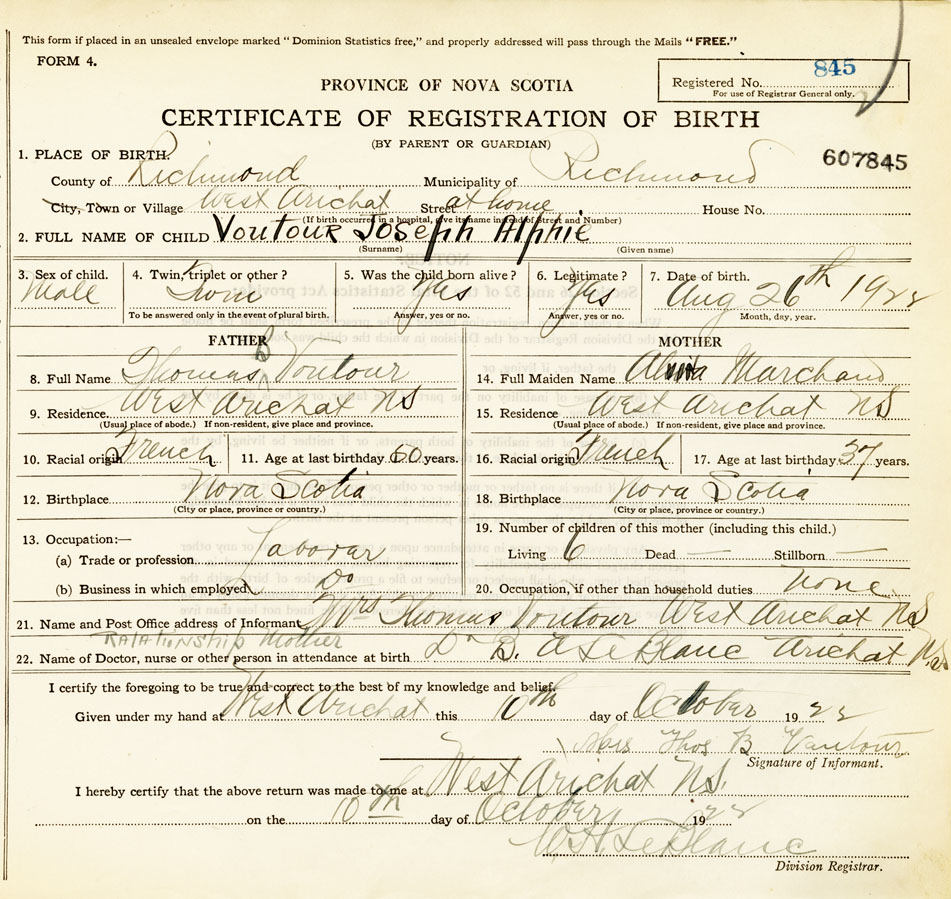 This form if placed in an unsealed envelope marked "Dominion Statistics free," and properly addressed will pass through the Mails "FREE."
FORM 4.
845
Registered No.
For use of Registrar General only.
PROVINCE OF NOVA SCOTIA
CERTIFICATE OF REGISTRATION OF BIRTH
(BY PARENT OR GUARDIAN)
607845
1. PLACE OF BIRTH.
County of Richmond Municipality of Richmond
City, Town or Village West Arichat Street at home House No.
(If birth occurred in a hospital, give its name instead of Street and Number)
2. FULL NAME OF CHILD Voutour Joseph Alphie
(Surname) (Given name)
3. Sex of child. 4. Twin, triplet or other? 5. Was the child born alive? 6. Legitimate? 7. Date of birth.
Male Yes Yes Aug 26th 1922
To be answered only in the event of plural birth. Answer, yes or no. Answer, yes or no. Month, day, year.
FATHER MOTHER
8. Full Name Thomas B Voutour 14. Full Maiden Name Marchand
9. Residence West Arichat NS 15. Residence West Arichat NS
(Usual place of abode.) If non-resident, give place and province. (Usual place of abode.) If non-resident, give place and province.
10. Racial origin French 11. Age at last birthday years. 16. Racial origin French 17. Age at last birthday 37 years.
12. Birthplace Nova Scotia 18. Birthplace Nova Scotia
(City or place, province or country.) (City or place, province or country.)
13. Occupation:— 19. Number of children of this mother (including this child.)
(a) Trade or profession Laborar Living 6 Dead — Stillborn —
(b) Business in which employed Do 20. Occupation, if other than household duties None
21. Name and Post Office address of Informant Mrs Thomas Voutour West Arichat NS
RELATIONSHIP Mother
22. Name of Doctor, nurse or other person in attendance at birth Dr B. A LeBlanc Arichat N.S
I certify the foregoing to be true and correct to the best of my knowledge and belief.
Given under my hand at West Arichat this 10th day of October 1922
Mrs Thos B Voutour
Signature of Informant.
I hereby certify that the above return was made to me at West Arichat NS.
on the 10th day of October 1922
LeBlanc
Division Registrar.